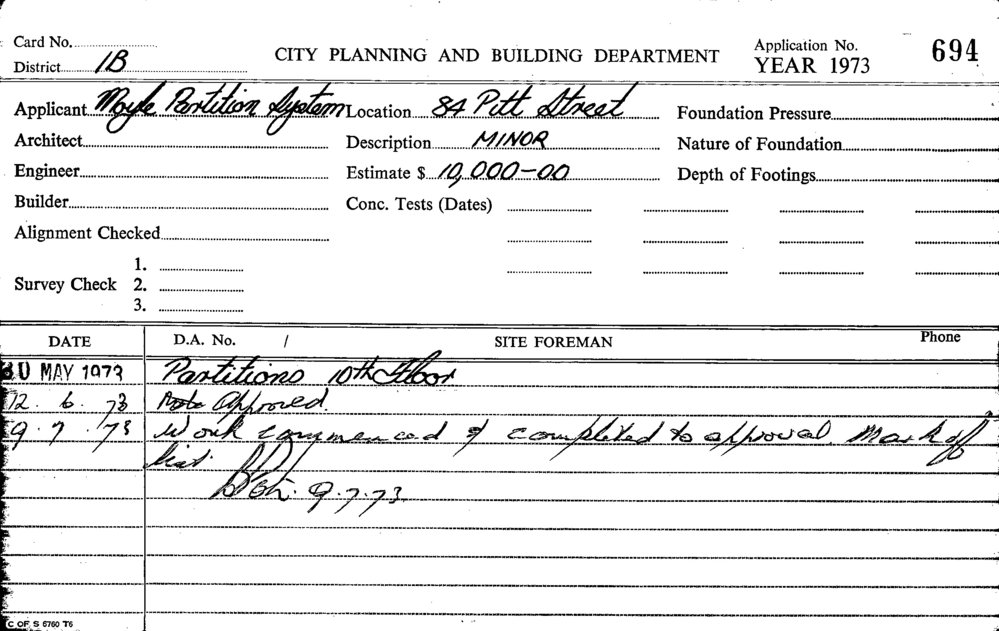 Card No.
District 1B
CITY PLANNING AND BUILDING DEPARTMENT
Application No. 694
YEAR 1973
Applicant Moyle Partition System Location 84 Pitt Street Foundation Pressure
Architect Description MINOR Nature of Foundation
Engineer Estimate $ 10,000-00 Depth of Footings
Builder Conc. Tests (Dates)
Alignment Checked
1.
Survey Check 2.
3.
DATE D.A. No. / SITE FOREMAN Phone
30 MAY 1973 Partitions 10th Floor
12. 6. 73 Approved.
9. 7. 73 Work commenced & completed to approval. Mark off
list.
9.7.73
C OF S 5760 T6